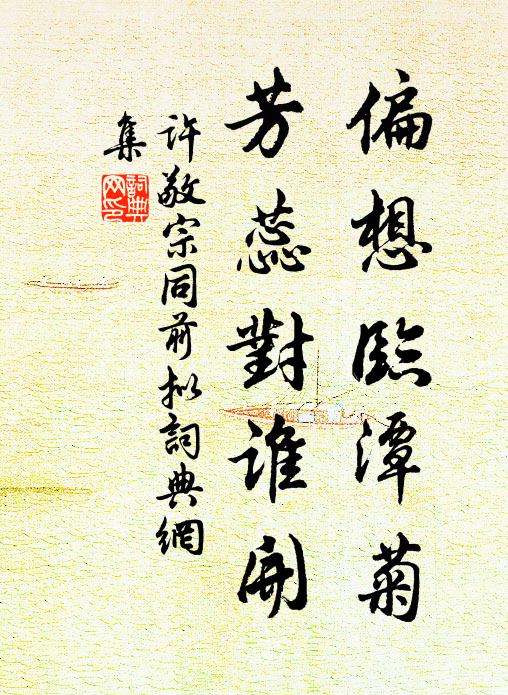 偏想臨潭菊
芳蕊對誰開
許敬宗同前拟詞典網
集
詞典
网印